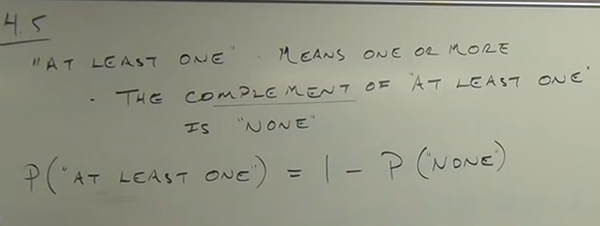 4.5
"AT LEAST ONE" · MEANS ONE OR MORE
· THE COMPLEMENT OF "AT LEAST ONE"
IS "NONE"
P("AT LEAST ONE") = 1 - P("NONE")